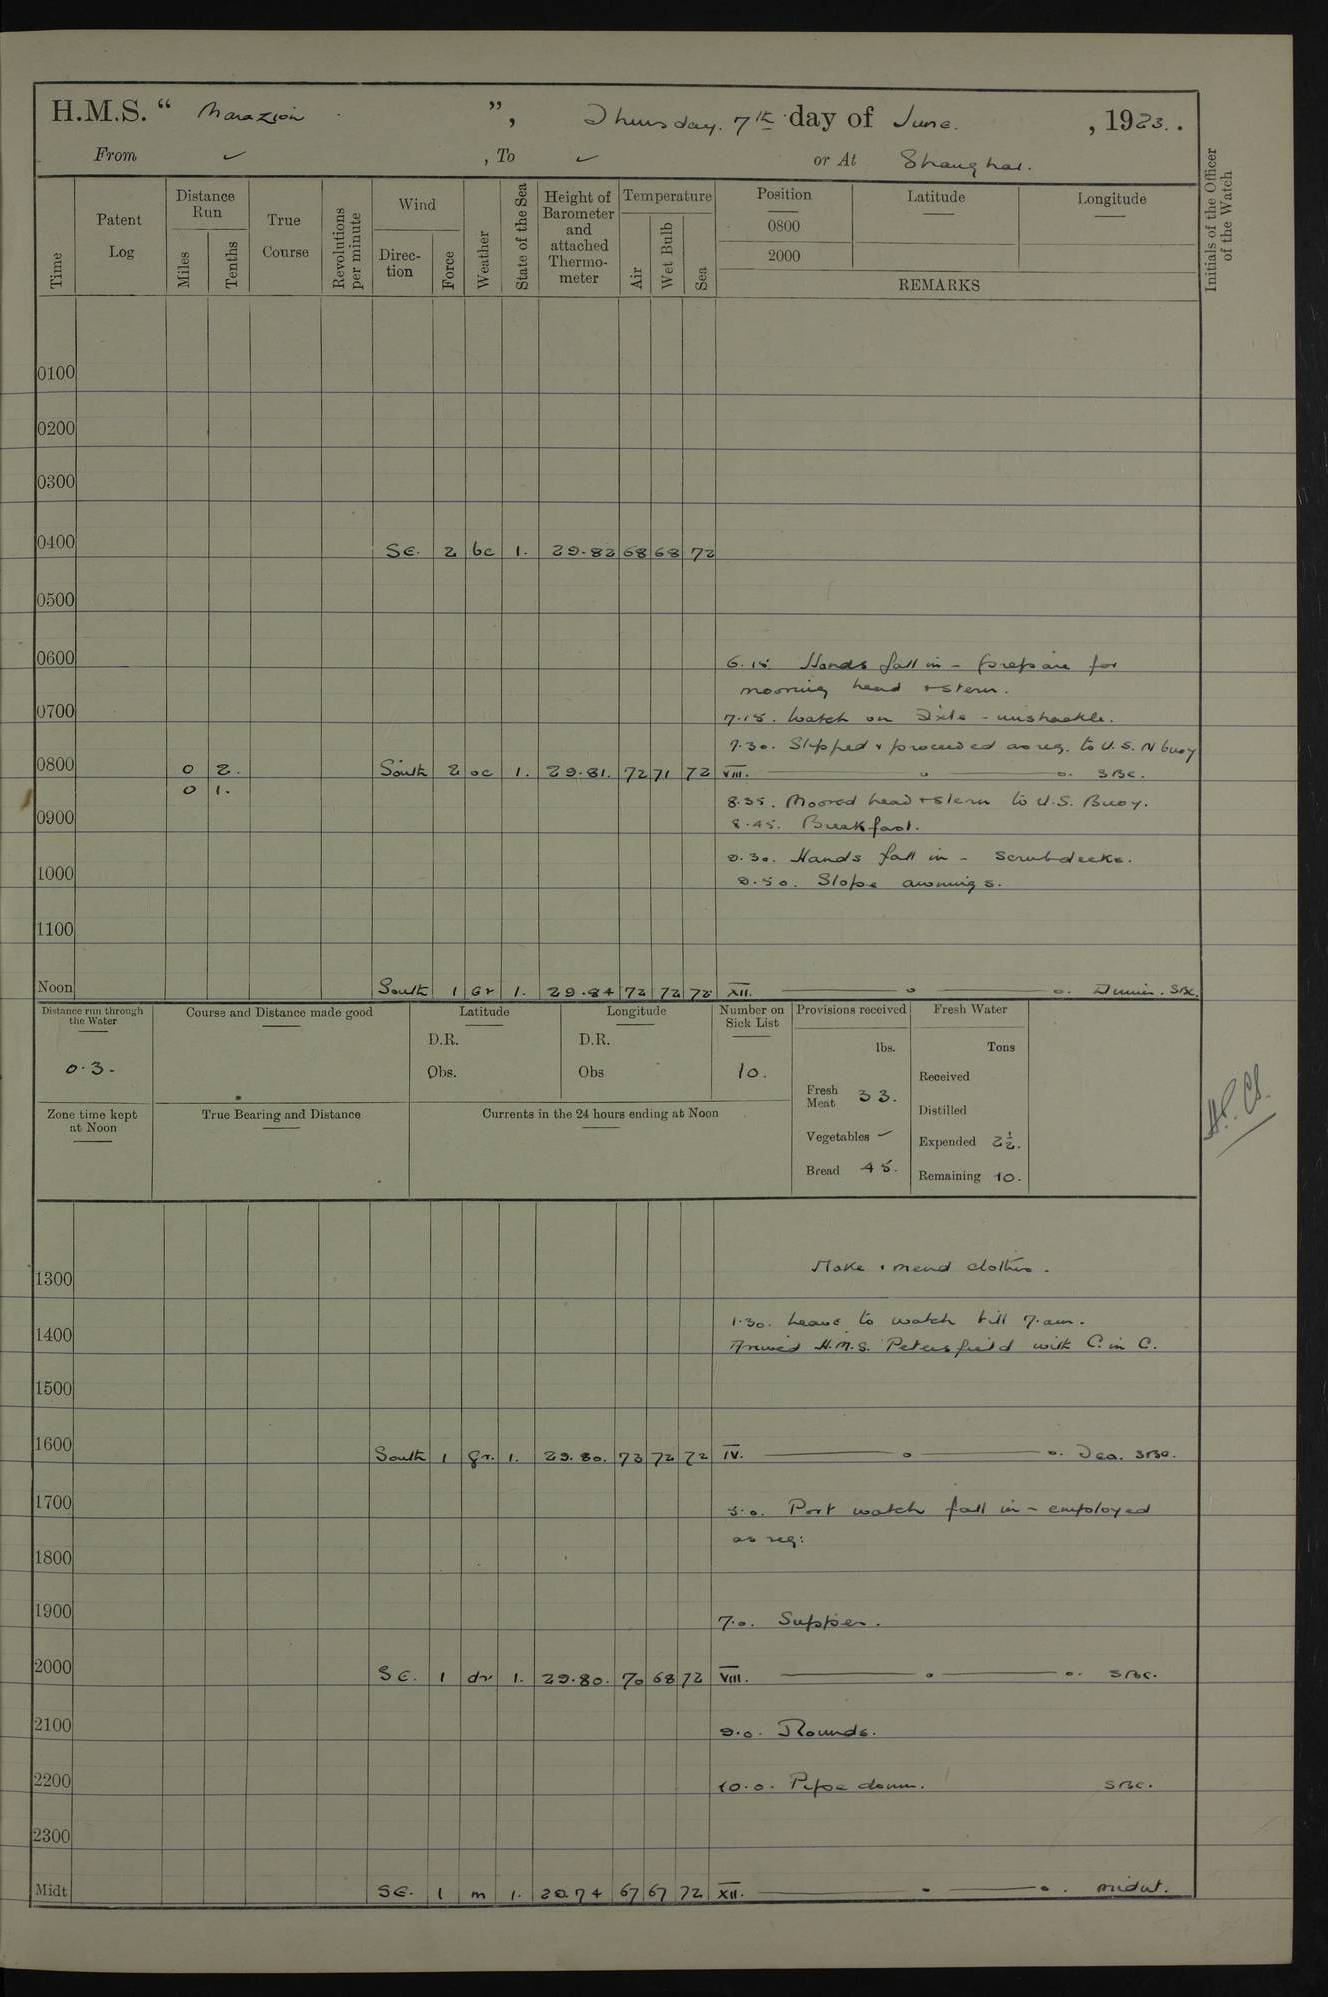 H.M.S. “ Marazion ”, Thursday. 7th day of June. , 1923. .
From ✓ , To ✓ or At Shanghai.
Time
Patent Log
Distance Run
Miles
Tenths
True Course
Revolutions per minute
Wind
Direction
Force
Weather
State of the Sea
Height of Barometer and attached Thermometer
Temperature
Air
Wet Bulb
Sea
Position
0800
2000
Latitude
Longitude
REMARKS
Initials of the Officer of the Watch
0100
0200
0300
0400 SE. 2 bc 1. 29.82 68 68 72
0500
0600 6.15 Hands fall in - prepare for
mooring head + stern.
0700 7.15. Watch on Dixle - unshackle.
7.30. Slipped + proceeded as req. to U.S. N buoy
0800 0 2. South 2 oc 1. 29.81. 72 71 72 VIII. SBC.
0 1.
8.35. Moored head + stern to U.S. Buoy.
0900 8.45. Breakfast.
9.30. Hands fall in - scrub decks.
1000 9.50. Slope awnings.
1100
Noon South 1 Gr 1. 29.84 72 72 72 XII. Dinner. SBC.
Distance run through the Water
0.3.
Course and Distance made good
Latitude
D.R.
Obs.
Longitude
D.R.
Obs
Number on Sick List
10.
Provisions received
lbs.
Fresh Meat 33.
Vegetables –
Bread 45.
Fresh Water
Tons
Received
Distilled
Expended 2½.
Remaining 10.
Zone time kept at Noon
True Bearing and Distance
Currents in the 24 hours ending at Noon
1300 Make + mend clothes.
1400 1.30. Leave to watch till 7.am.
Arrived H.M.S. Petersfield with C. in C.
1500
1600 South 1 gr. 1. 29.80. 73 72 72 IV. Tea. SBC.
1700 5.0. Port watch fall in - employed
as req:
1800
1900 7.0. Supper.
2000 SE. 1 dr 1. 29.80. 70 68 72 VIII. SBC.
2100 9.0. Rounds.
2200 10.0. Pipe down. SBC.
2300
Midt SE. 1 m 1. 29.74 67 67 72 XII. midnt.